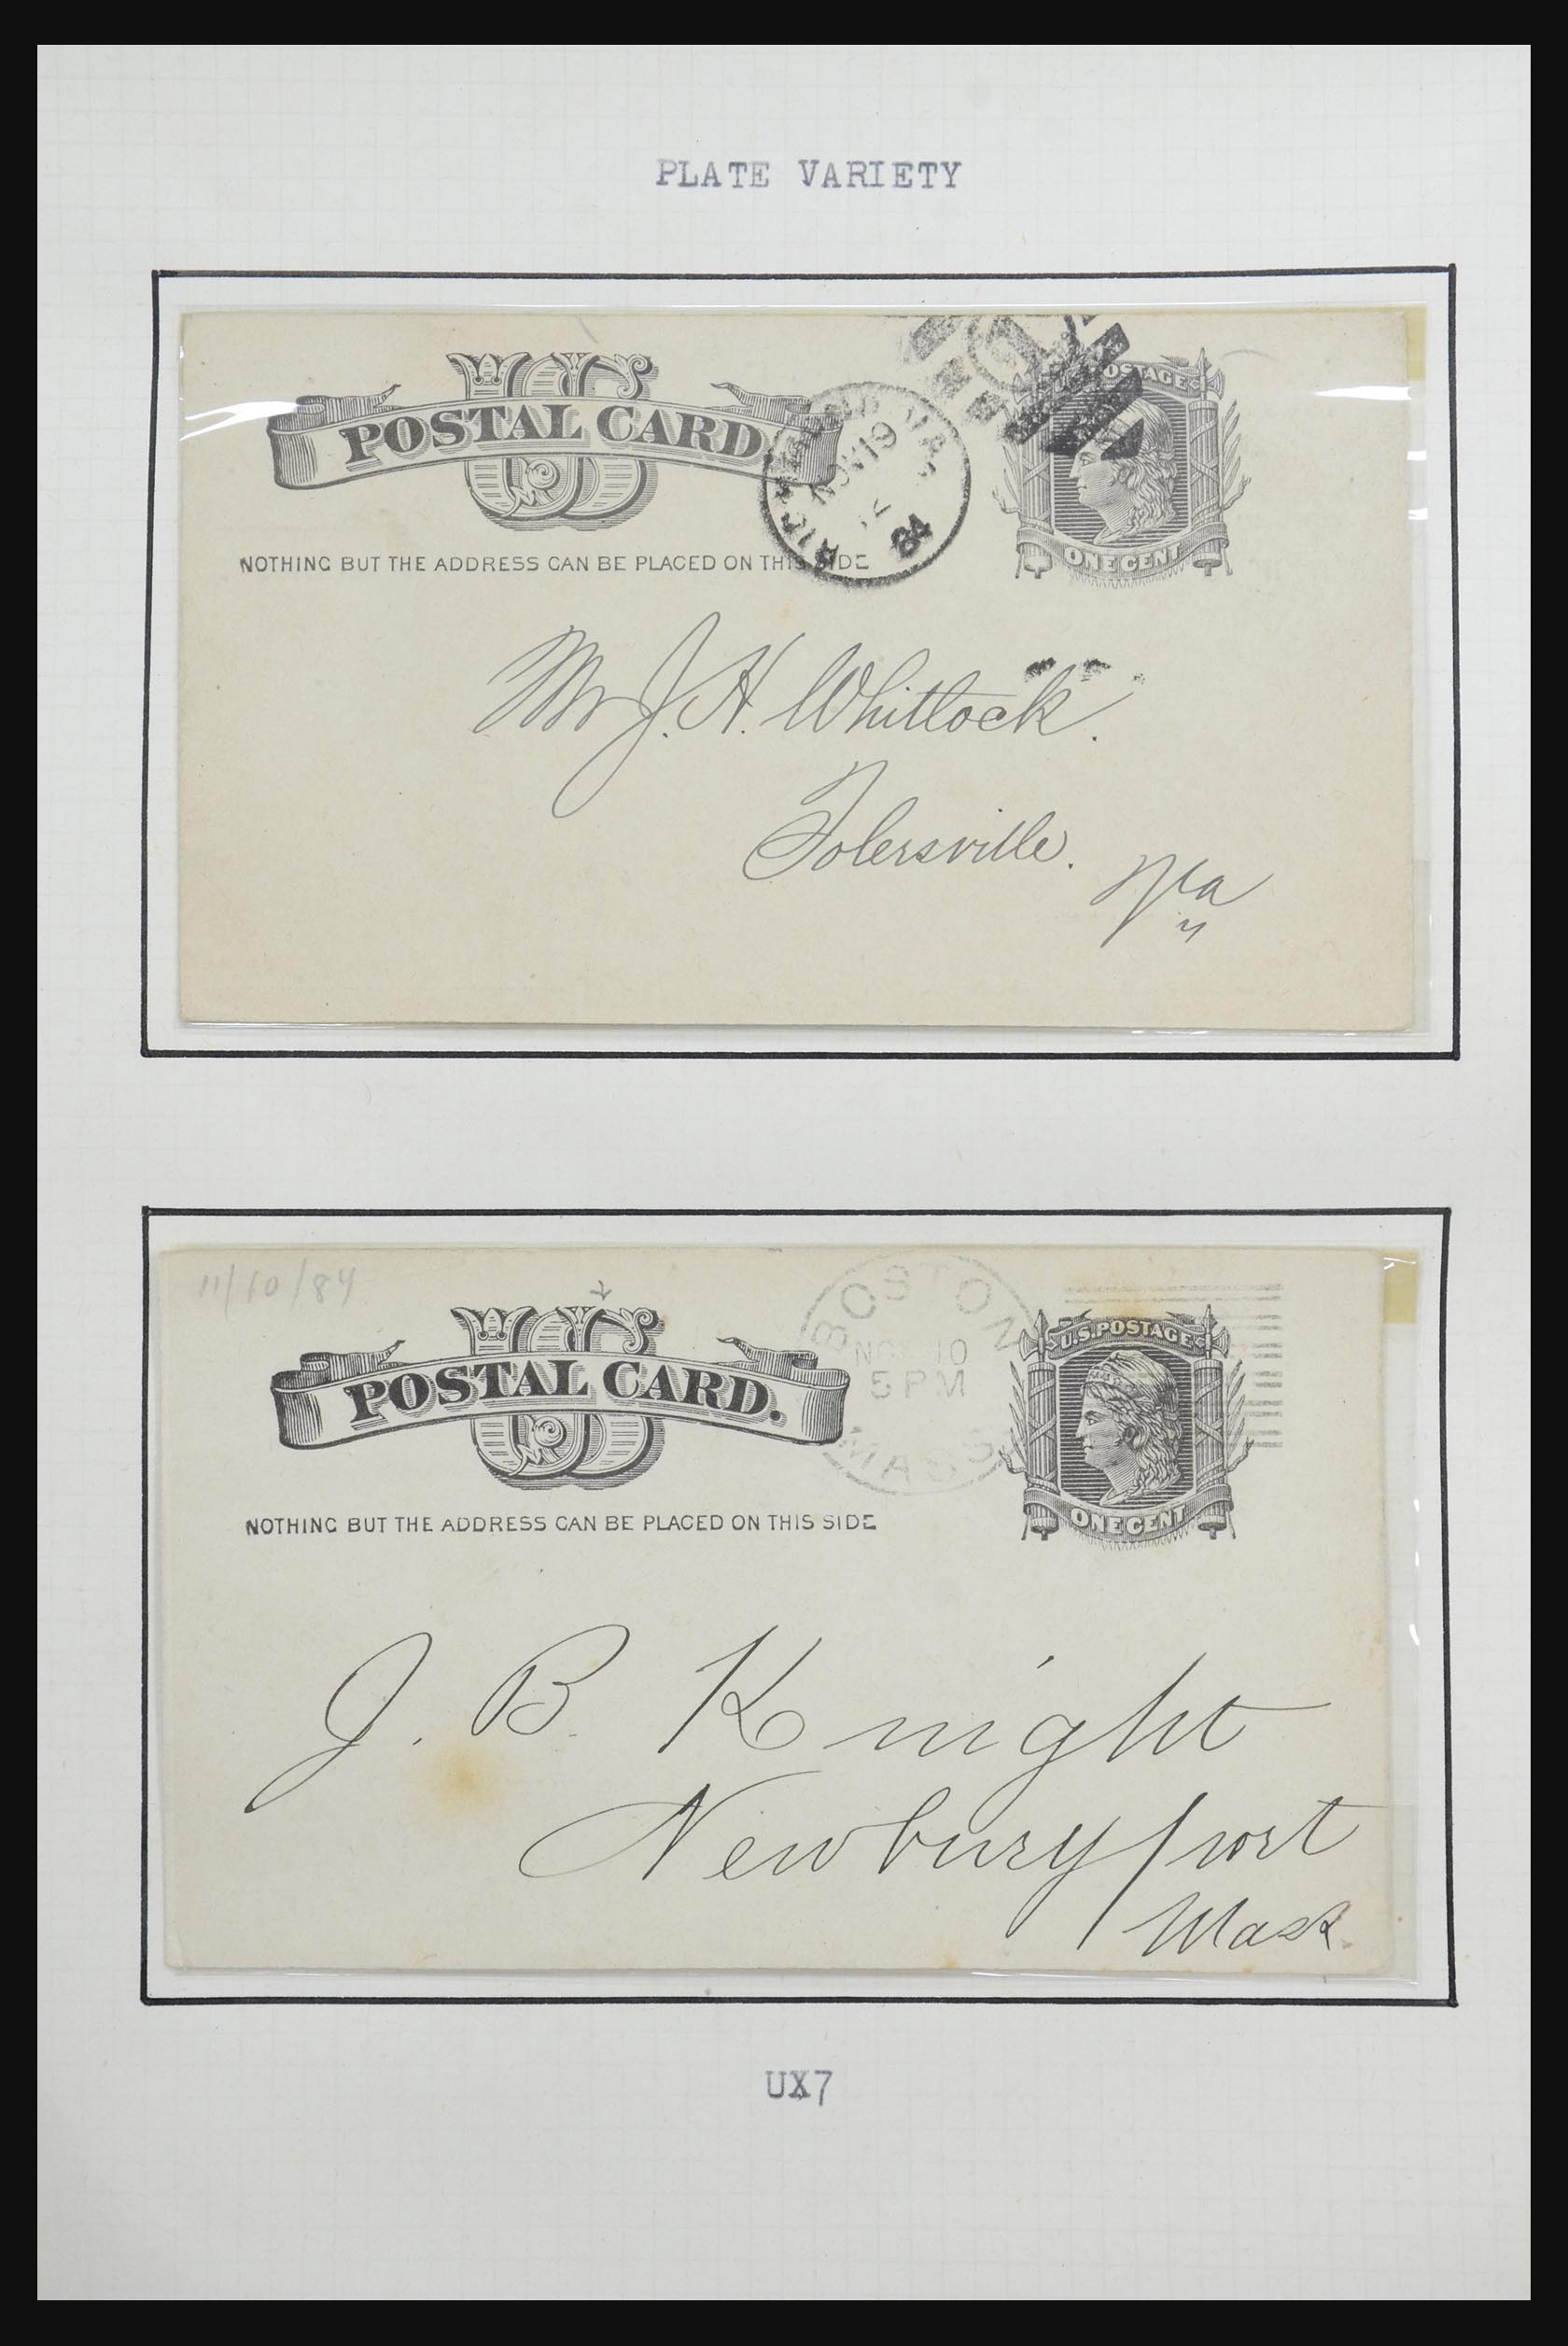 PLATE VARIETY
U.S. POSTAL CARD
NOTHING BUT THE ADDRESS CAN BE PLACED ON THIS SIDE
NOV 19
84
VA.
POSTAGE
ONE CENT
Mr J. H. Whitlock.
Tolersville.
Va
11/10/84
US POSTAL CARD.
NOTHING BUT THE ADDRESS CAN BE PLACED ON THIS SIDE
BOSTON
10
5 PM
MASS
U.S. POSTAGE
ONE CENT
J. B. Knight
Newburyport
Mass
UX7